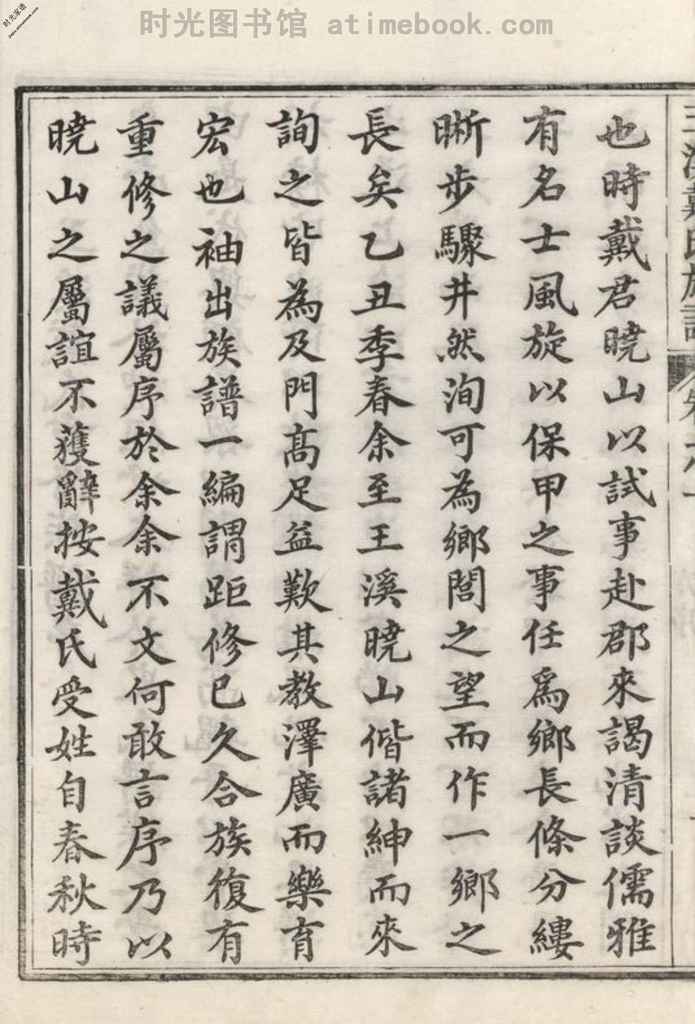 时光图书馆 atimebook.com
时光家谱
www.atimebook.com
戴氏族譜
也時戴君曉山以試事赴郡來謁清談儒雅
有名士風旋以保甲之事任爲鄉長條分縷
晰步驟井然洵可為鄉閭之望而作一鄉之
長矣乙丑季春余至王溪曉山偕諸紳而來
詢之皆為及門高足益歎其教澤廣而樂育
宏也袖出族譜一編謂距修已久合族復有
重修之議屬序於余余不文何敢言序乃以
曉山之屬誼不獲辭按戴氏受姓自春秋時